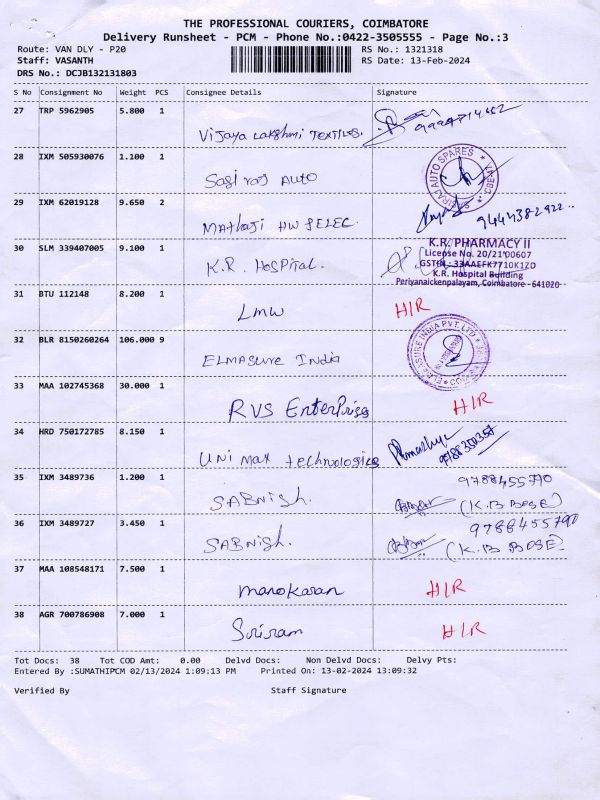 THE PROFESSIONAL COURIERS, COIMBATORE
Delivery Runsheet - PCM - Phone No.:0422-3505555 - Page No.:3
Route: VAN DLY - P20 RS No.: 1321318
Staff: VASANTH RS Date: 13-Feb-2024
DRS No.: DCJB132131803
S No Consignment No Weight PCS Consignee Details Signature
27 TRP 5962905 5.800 1 Vijaya Lakshmi Textiles.
28 IXM 505930076 1.100 1 Sagi raj Auto
AUTO SPARES
29 IXM 62019128 9.650 2 Mathaji HW & ELEC. 9444382922
30 SLM 339407005 9.100 1 K.R. Hospital.
K.R. PHARMACY II
License No. 20/21/00607
GSTIN : 33AAEFK7710K1ZD
K.R. Hospital Building
Periyanaickenpalayam, Coimbatore - 641020
31 BTU 112148 8.200 1 LMW HIR
32 BLR 8150260264 106.000 9 ELMASURE India
ELMEASURE INDIA PVT. LTD
33 MAA 102745368 30.000 1 RVS Enterprises HIR
34 HRD 750172785 8.150 1 UNi Max technologies
35 IXM 3489736 1.200 1 SABNish. 9788455790
(K.B BOSE)
36 IXM 3489727 3.450 1 SABNish. 9788455790
(K.B BOSE)
37 MAA 108548171 7.500 1 manokaran HIR
38 AGR 700786908 7.000 1 Sriram HIR
Tot Docs: 38 Tot COD Amt: 0.00 Delvd Docs: Non Delvd Docs: Delvy Pts:
Entered By :SUMATHIPCM 02/13/2024 1:09:13 PM Printed On: 13-02-2024 13:09:32
Verified By Staff Signature